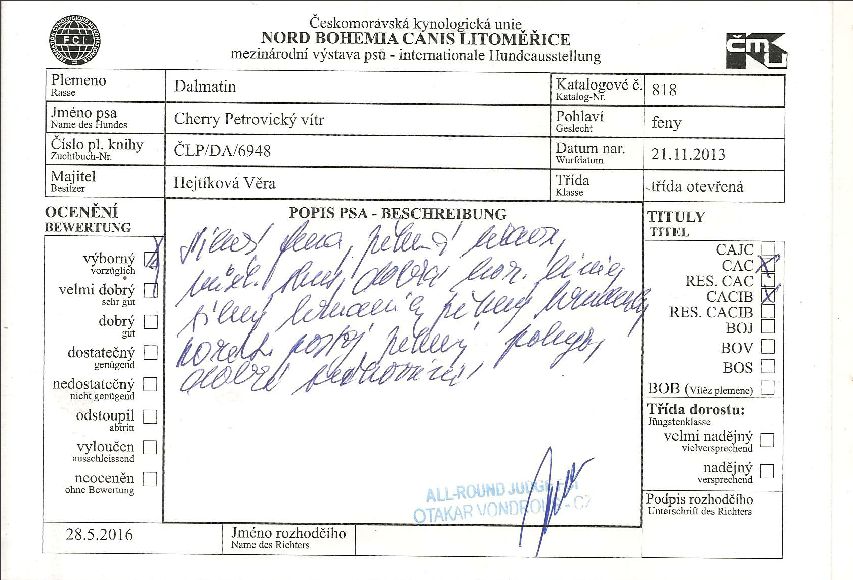 FCI
Českomorávská kynologická unie
NORD BOHEMIA CANIS LITOMĚŘICE
mezinárodní výstava psů - internationale Hundeausstellung
ČMKU
Plemeno
Rasse
Dalmatin
Katalogové č.
Katalog-Nr.
818
Jméno psa
Name des Hundes
Cherry Petrovický vítr
Pohlaví
Geslecht
feny
Číslo pl. knihy
Zuchtbuch-Nr.
ČLP/DA/6948
Datum nar.
Wurfdatum
21.11.2013
Majitel
Besitzer
Hejtíková Věra
Třída
Klasse
třída otevřená
OCENĚNÍ
BEWERTUNG
výborný
vorzüglich
velmi dobrý
sehr gut
dobrý
gut
dostatečný
genügend
nedostatečný
nicht genügend
odstoupil
abtritt
vyloučen
ausschleissend
neoceněn
ohne Bewertung
POPIS PSA - BESCHREIBUNG
fena, pěkná hlava,
dobrá hor. linie,
silný pěkný
postoj pěkný pohyb,
dobré
ALL-ROUND JUDGE
OTAKAR VONDROUŠ - CZ
TITULY
TITEL
CAJC
CAC
RES. CAC
CACIB
RES. CACIB
BOJ
BOV
BOS
BOB (Vítěz plemene)
Třída dorostu:
Jüngstenklasse
velmi nadějný
vielversprechend
nadějný
versprechend
Podpis rozhodčího
Unterschrift des Richters
28.5.2016
Jméno rozhodčího
Name des Richters